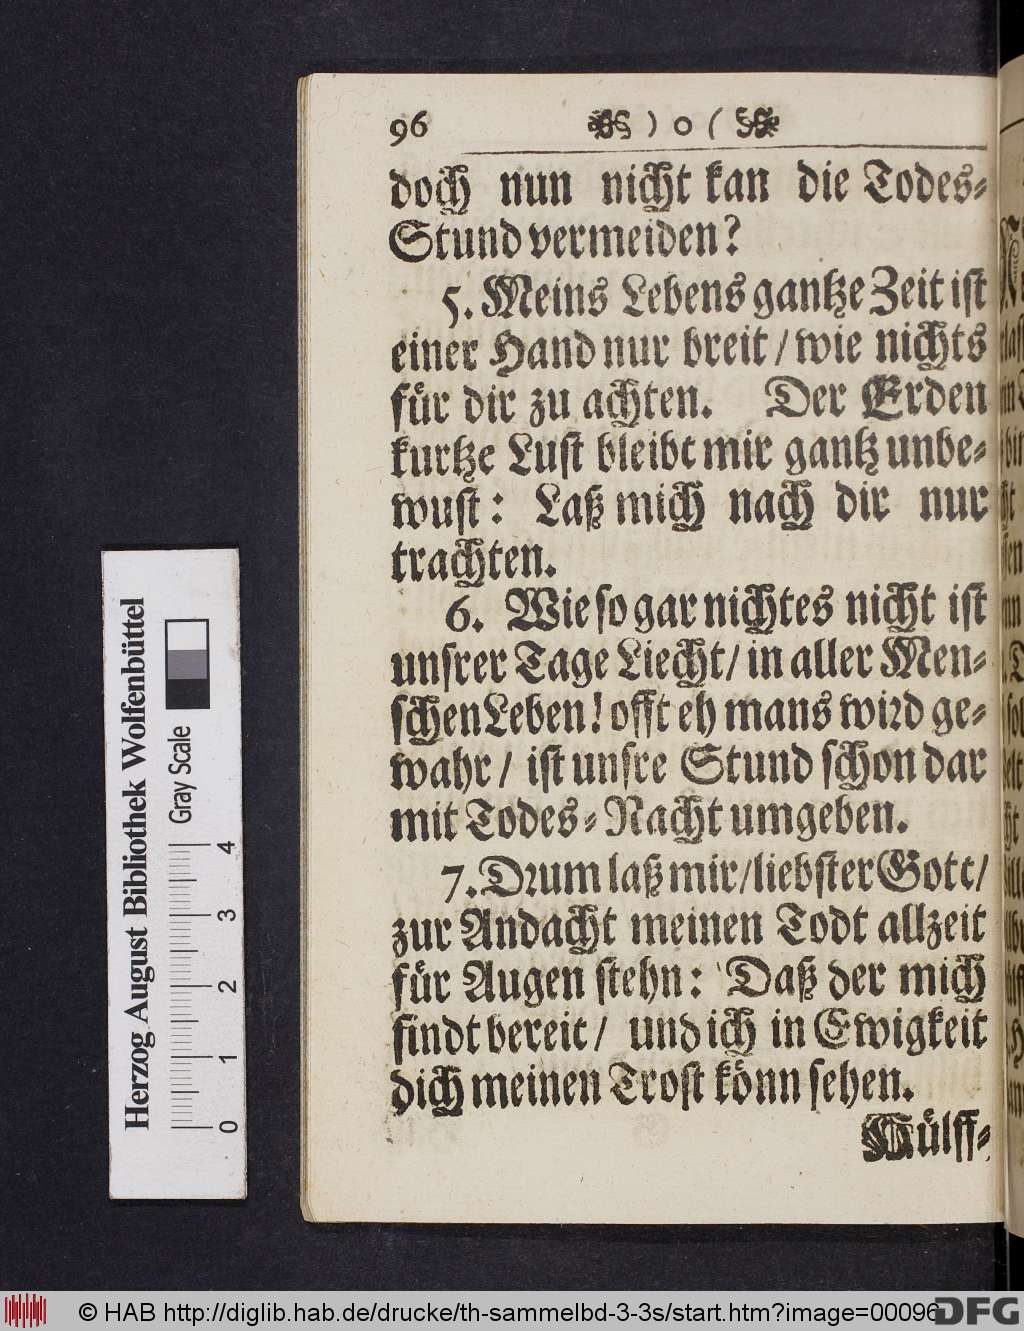 96 ) o (
doch nun nicht kan die Todes-
Stund vermeiden?
5. Meins Lebens gantze Zeit ist
einer Hand nur breit / wie nichts
für dir zu achten. Der Erden
kurtze Lust bleibt mir gantz unbe-
wust: Laß mich nach dir nur
trachten.
6. Wie so gar nichtes nicht ist
unsrer Tage Liecht / in aller Men-
schen Leben! offt eh mans wird ge-
wahr / ist unsre Stund schon dar
mit Todes-Nacht umgeben.
7. Drum laß mir / liebster Gott /
zur Andacht meinen Todt allzeit
für Augen stehn: Daß der mich
findt bereit / und ich in Ewigkeit
dich meinen Trost könn sehen.
Hülff-
Herzog August Bibliothek Wolfenbüttel
Gray Scale
0 1 2 3 4
© HAB http://diglib.hab.de/drucke/th-sammelbd-3-3s/start.htm?image=00096
DFG